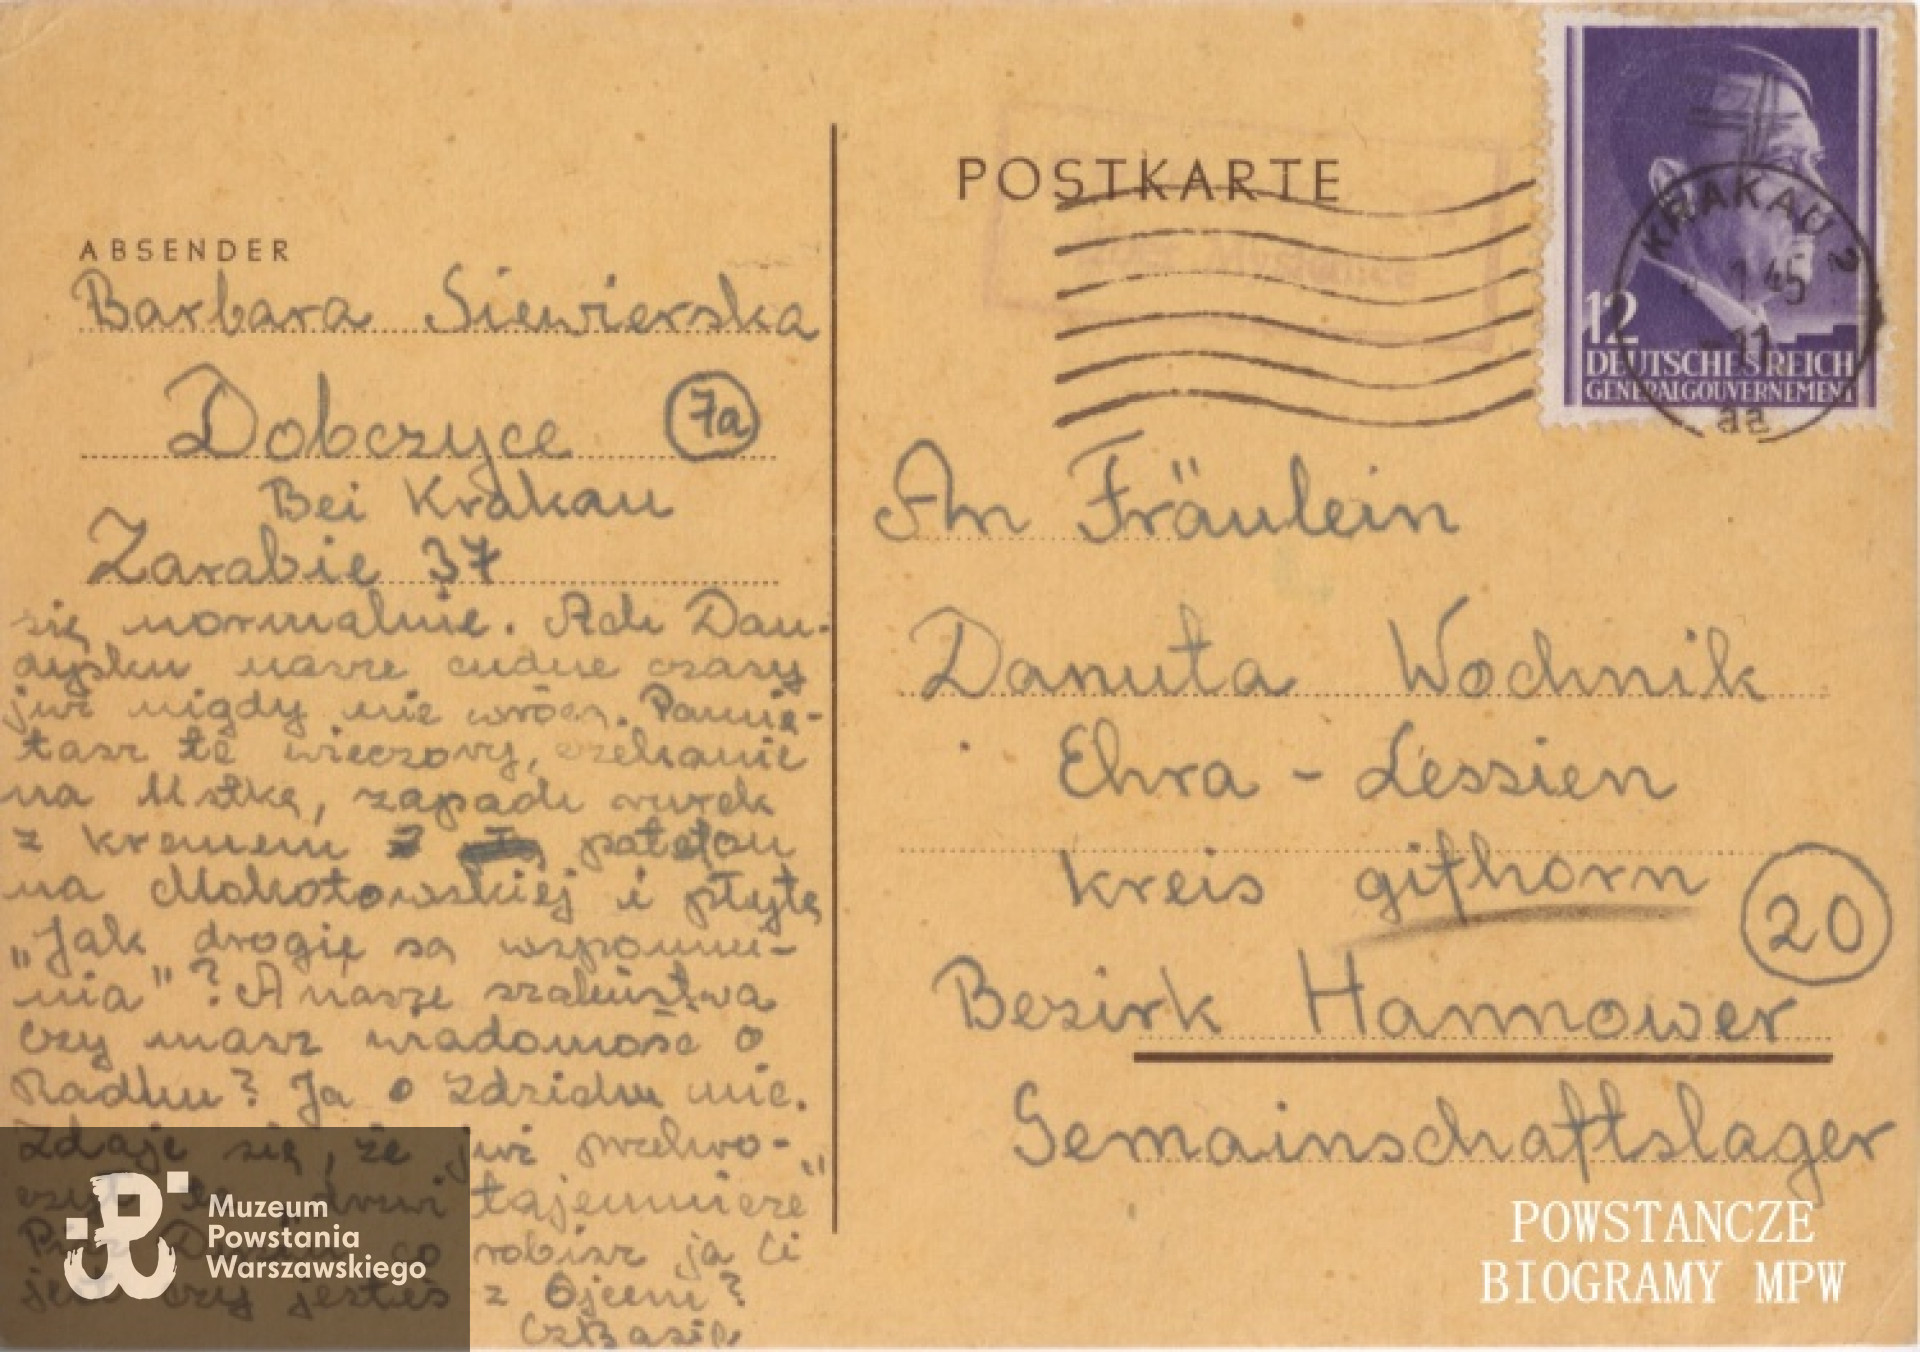 POSTKARTE
ABSENDER
Barbara Siewierska
Dobczyce 7a
Bei Krakau
Zarabie 37
się normalnie. Ach Dan-
dysku nasze cudne czasy
już nigdy nie wrócą. Pamię-
tasz te wieczory, czekanie
na Mstkę, zapach rurek
z kremem patefon
na Mokotowskiej i płytę
„Jak drogie są wspomnie-
nia"? A nasze szaleństwa
czy masz wiadomość o
Radku? Ja o Zdzichu nie.
Zdaje się, że już przekro-
drzwi tajemnicze"
co robisz ja Ci
jest czy jesteś z Ojcem?
KRAKAU 2
1 45
11
aa
12
DEUTSCHES REICH
GENERALGOUVERNEMENT
An Fräulein
Danuta Wochnik
Ehra - Lessien
Kreis gifhorn
20
Bezirk Hannower
Gemainschaftslager
Muzeum
Powstania
Warszawskiego
POWSTANCZE
BIOGRAMY MPW